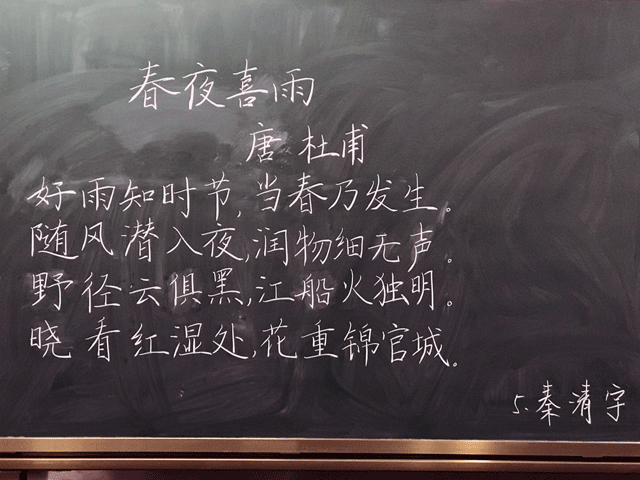 春夜喜雨
唐 杜甫
好雨知时节,当春乃发生。
随风潜入夜,润物细无声。
野径云俱黑,江船火独明。
晓看红湿处,花重锦官城。
5.秦清字